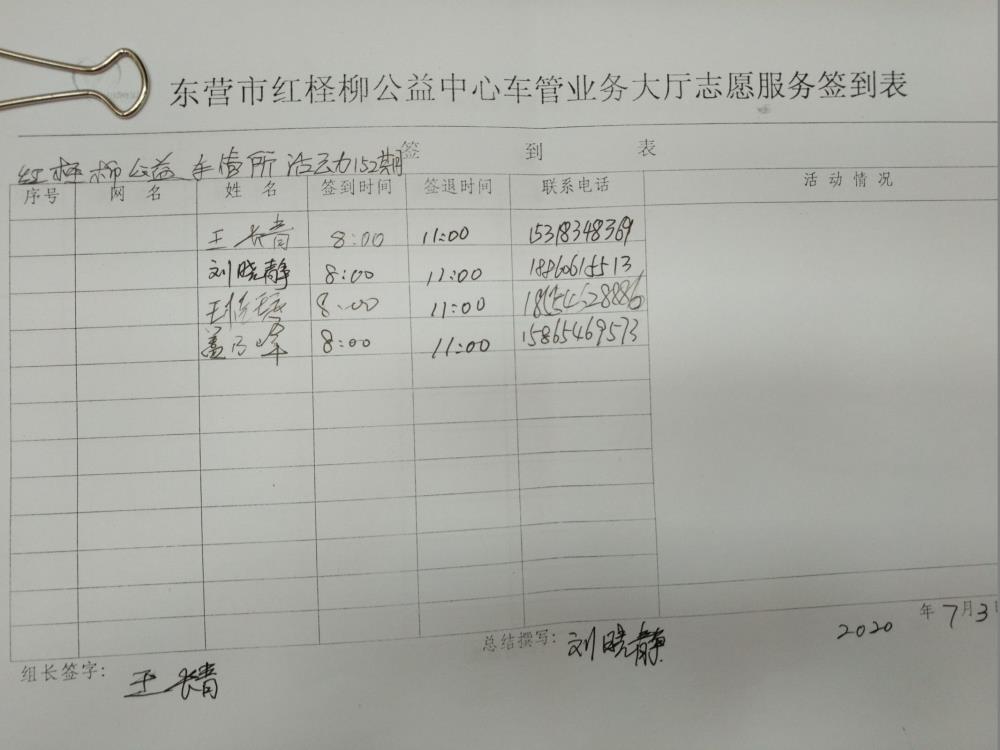 东营市红柽柳公益中心车管业务大厅志愿服务签到表
签 到 表
红柽柳公益车管所活动152期
序号 网名 姓名 签到时间 签退时间 联系电话 活动情况
王长青 8:00 11:00 15318348369
刘晓静 8:00 11:00 18860615513
8:00 11:00
盖乃峰 8:00 11:00 15865469573
2020 年 7月3
组长签字: 王长青 总结撰写: 刘晓静